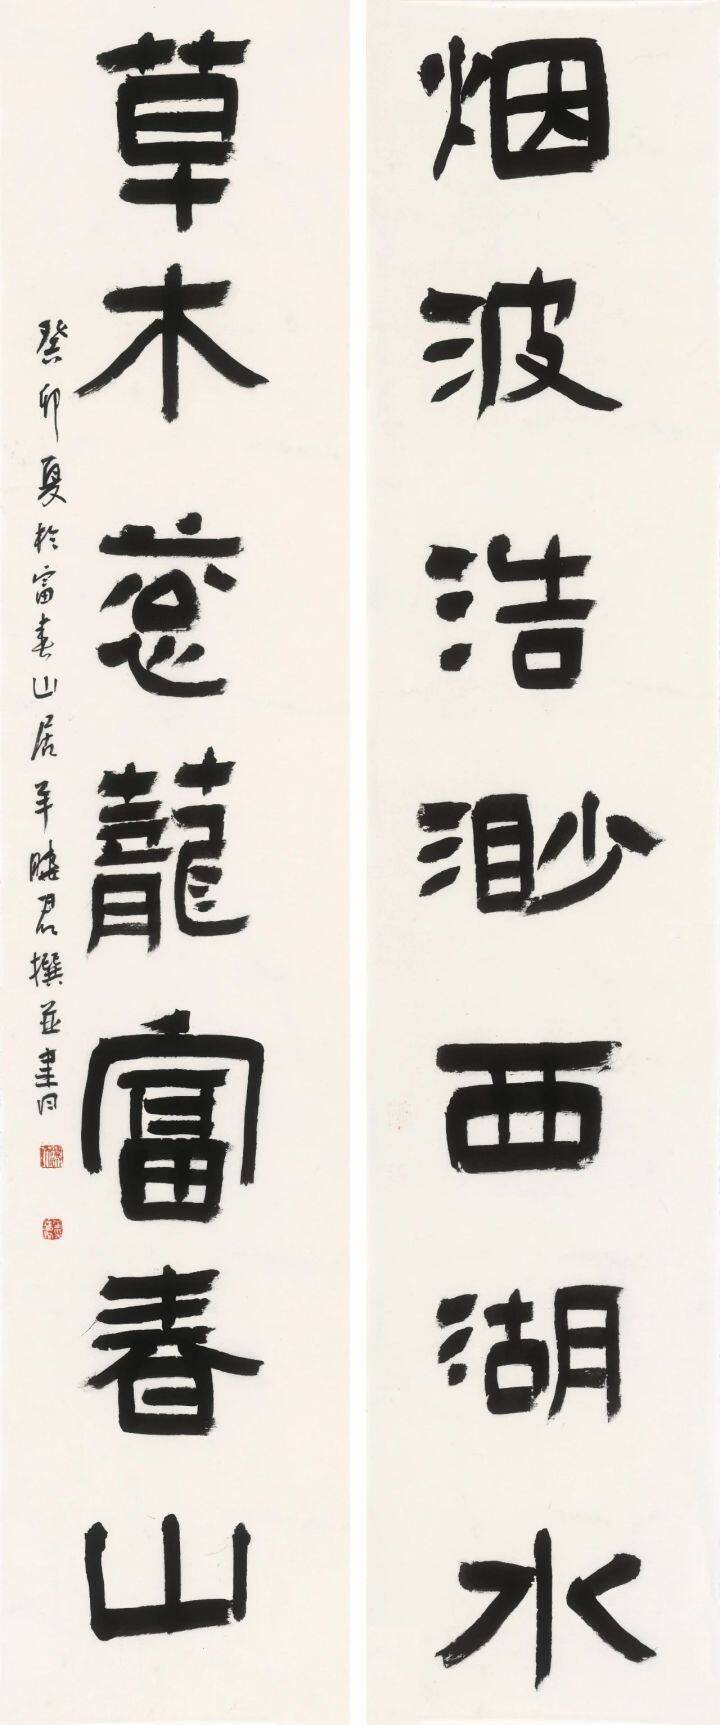 烟波浩渺西湖水
草木葱蘢富春山
癸卯夏於富春山居羊曉君撰并書